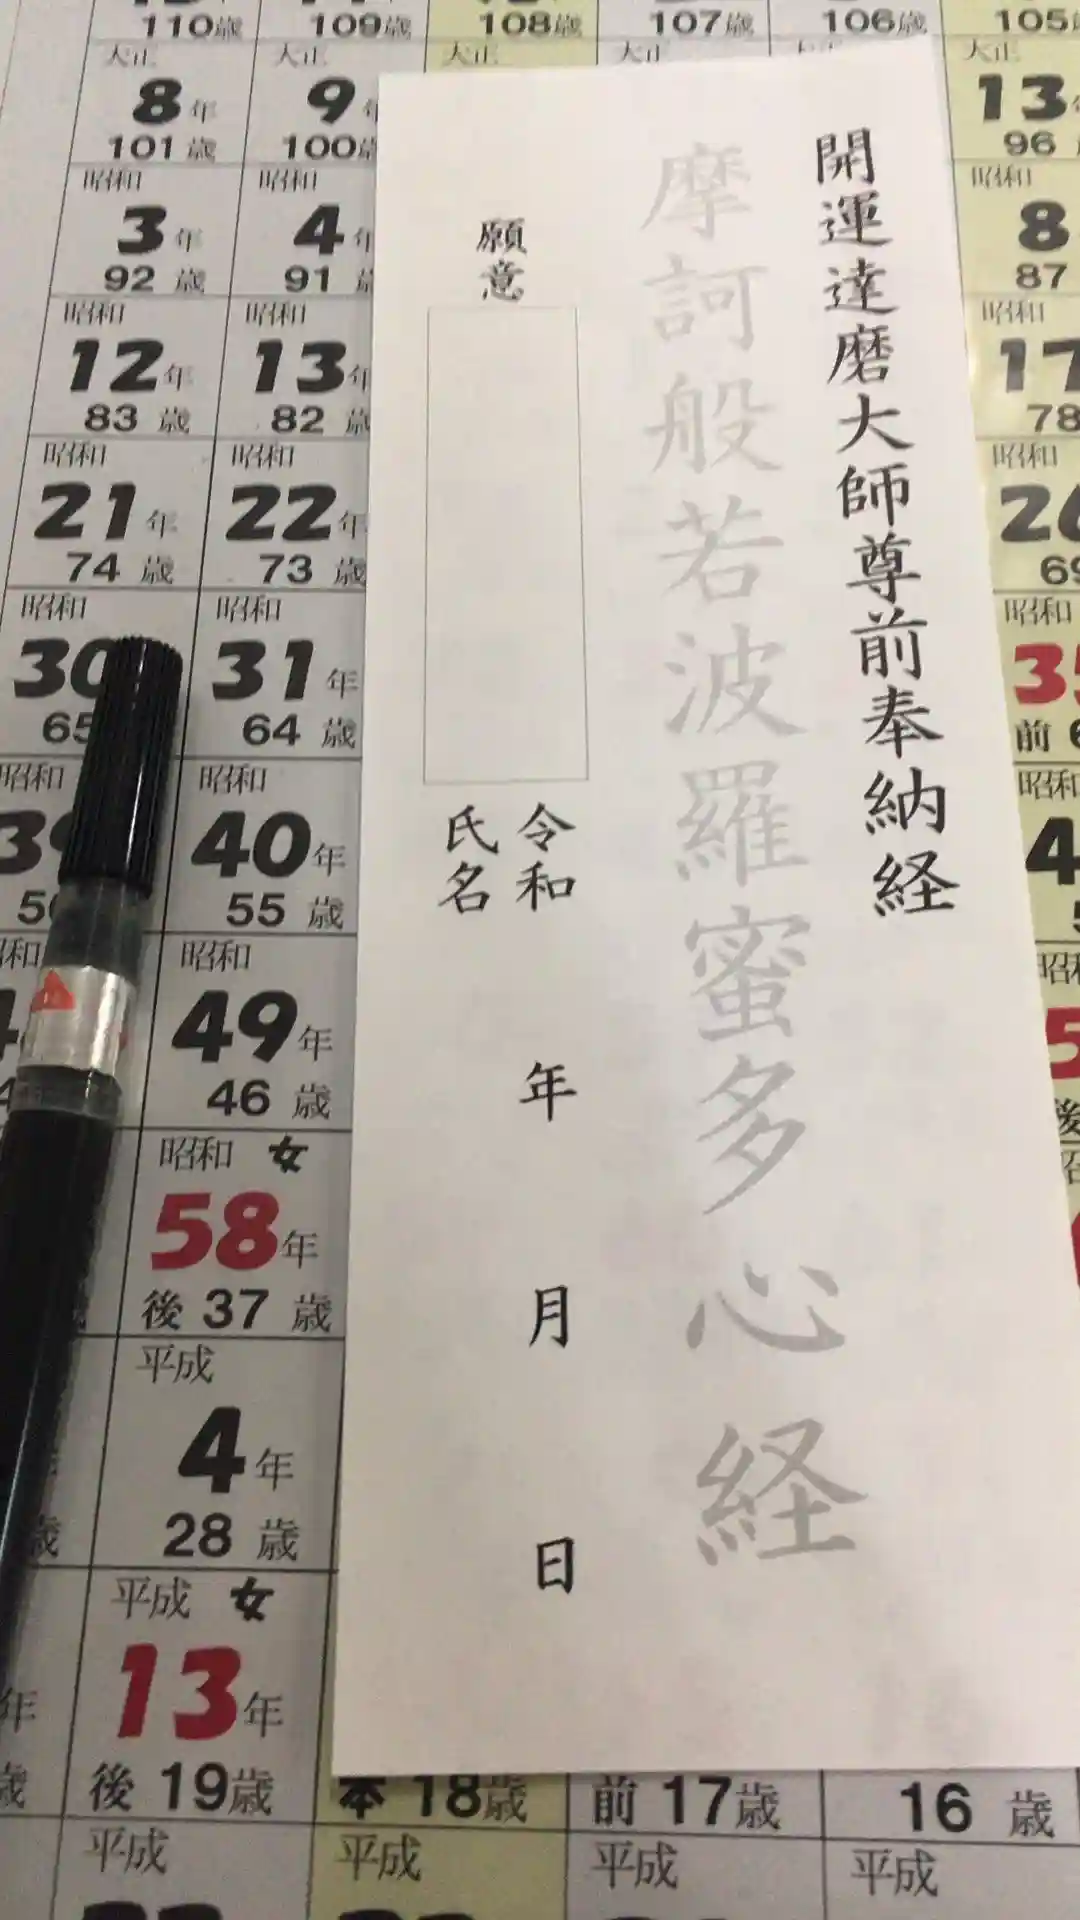 110歳 109歳 108歳 107歳 106歳 105歳
大正 大正 大正 大正 大正
8年 9年 13年
101歳 100歳 96
昭和 昭和 昭和
3年 4年 8
92歳 91 87
昭和 昭和 昭和
12年 13年 17
83歳 82歳 78
昭和 昭和 昭和
21年 22年 26
74歳 73歳 69
昭和 昭和 昭和
30 31年 35
65 64歳 前
昭和 昭和 昭和
39 40年 4
55歳
昭和
49年
46歳
昭和 女
58年
後 37歳
平成
4年
28歳
平成 女
13年
後 19歳 本 18歳 前 17歳 16歳
平成 平成 平成 平成
開運達磨大師尊前奉納経
摩訶般若波羅蜜多心経
願意
令和 年 月 日
氏名